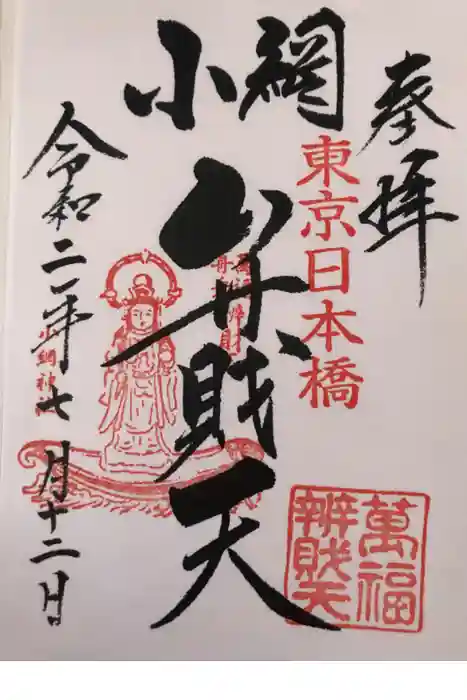 奉拝
東京日本橋
小網
弁財天
萬福
辨財天
小網神
令和二年七月十二日